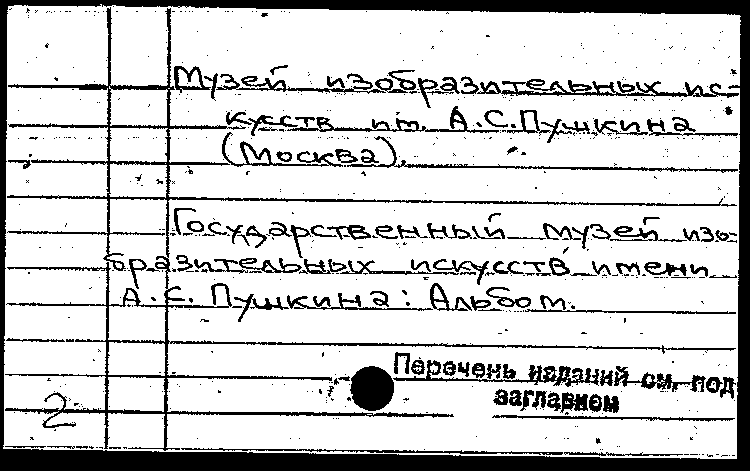 Музей изобразительных ис-
кусств им. А.С.Пушкина
(Москва).
Государственный музей изо-
бразительных искусств имени
А.С. Пушкина: Альбом.
Перечень изданий см. под
заглавием
2